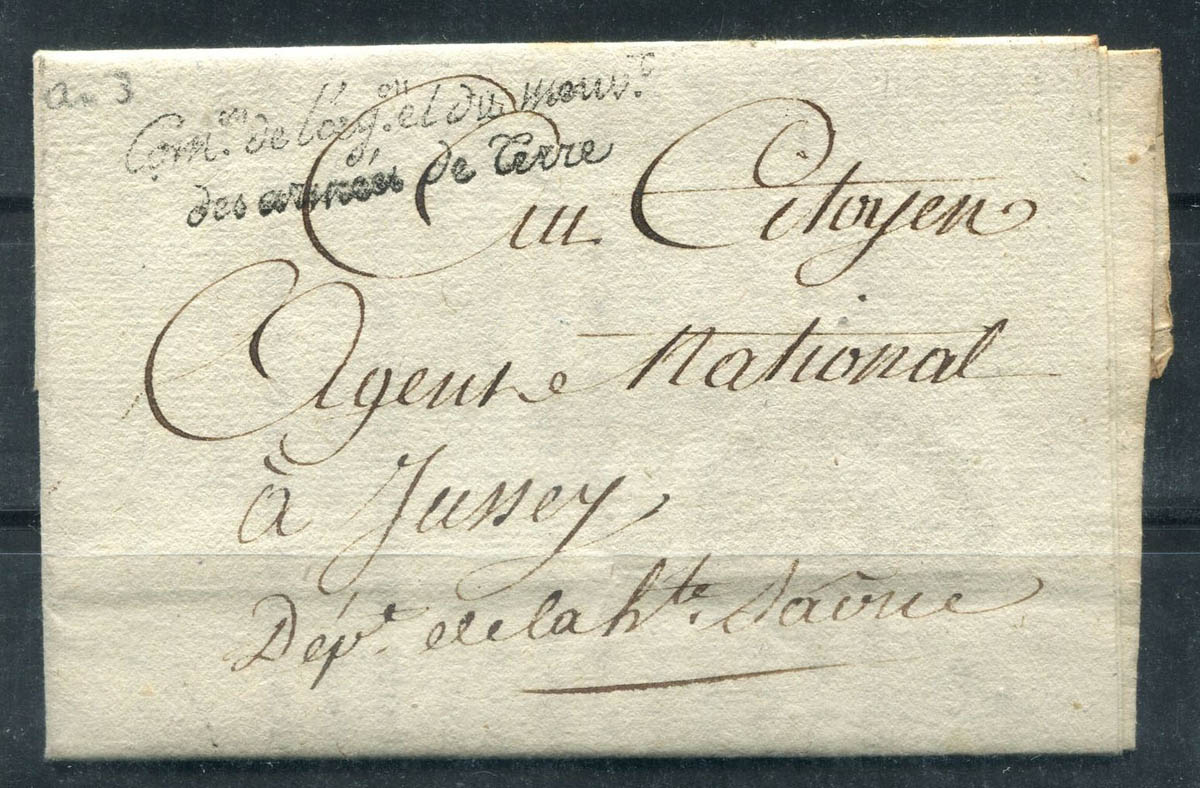 an 3
Com.on de l'org.on et du mouv.t
des armées de Terre
Au Citoyen
Agent National
à Jussey
Dép.t de la h.te Saône